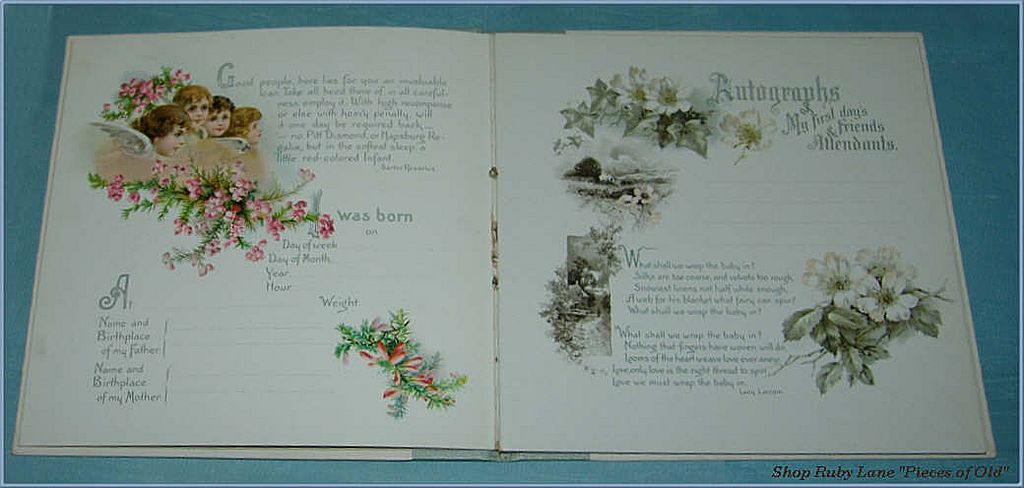 Good people, here lies for you an invaluable
loan. Take all heed there of, in all careful-
ness employ it. With high recompense
or else with heavy penalty, will
it one day be required back
— no Pitt Diamond, or Hapsburg Re-
galia, but in the softest sleep, a
little red-colored Infant.
Sartor Resartus.
I was born
on
Day of week
Day of Month.
Year.
Hour
Weight.
At
Name and
Birthplace
of my Father
Name and
Birthplace
of my Mother
Autographs
My first day's
& friends
Attendants.
What shall we wrap the baby in?
Silks are too coarse, and velvets too rough,
Snowiest linens not half white enough,
A web for his blanket what fairy can spin?
What shall we wrap the baby in?
What shall we wrap the baby in?
Nothing that fingers have woven will do,
Looms of the heart weave love ever anew,
Love, only love is the right thread to spin
Love we must wrap the baby in.
Lucy Larcom.
Shop Ruby Lane "Pieces of Old"